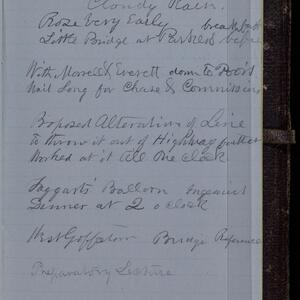 Cloudy Rain.
Rose Very Early breakfast
Little Bridge at Parkers before
With Morrell & Everett down to Poors
Nail Song for Chase & Commissions
Proposed Alteration of Line
to throw it out of Highway further
Worked at it all One o'clock
Taggarts Balloon
Dinner at 2 o'clock
West Goffstown Bridge Reference
Preparatory Lecture